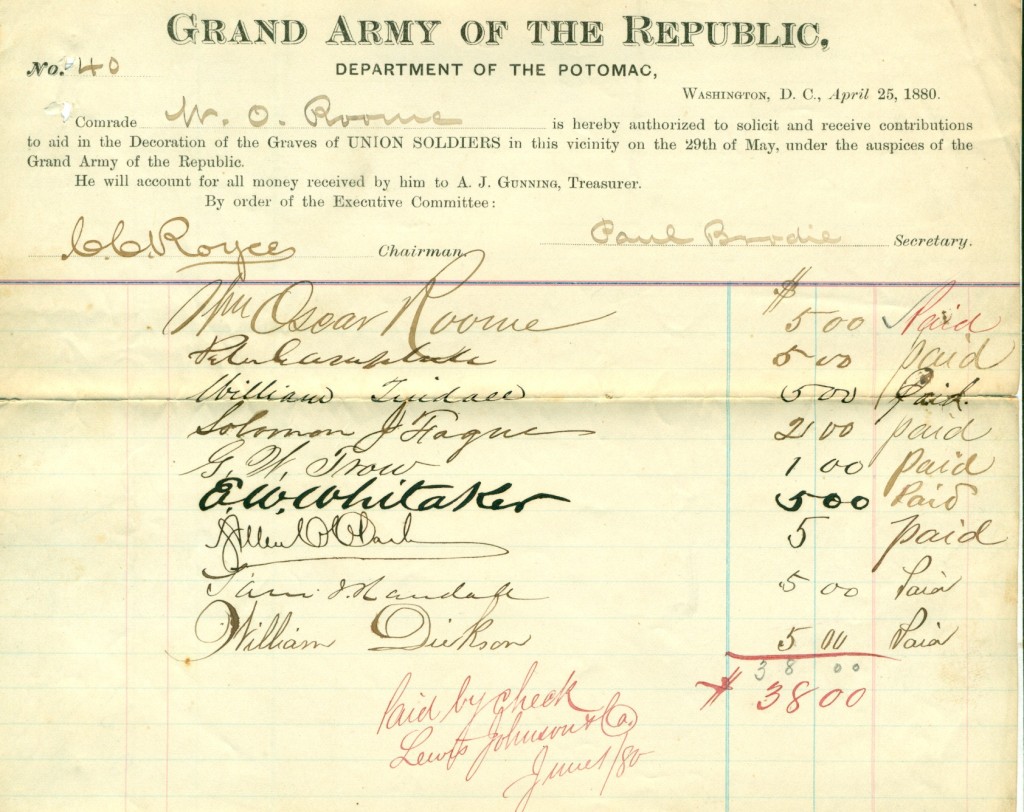 GRAND ARMY OF THE REPUBLIC,
No. 40
DEPARTMENT OF THE POTOMAC,
WASHINGTON, D. C., April 25, 1880.
Comrade W. O. Roome is hereby authorized to solicit and receive contributions
to aid in the Decoration of the Graves of UNION SOLDIERS in this vicinity on the 29th of May, under the auspices of the
Grand Army of the Republic.
He will account for all money received by him to A. J. GUNNING, Treasurer.
By order of the Executive Committee:
C. C. Royce Chairman. Paul Brodie Secretary.
$
Wm Oscar Roome 5 00 Paid
Peter 5 00 paid
William Tindall 5 00 Paid.
Solomon J Fague 2 00 paid
G. W. Trow 1 00 paid
E. W. Whitaker 5 00 Paid
Allen C Clark 5 paid
5 00 Paid
William Dickson 5 00 Paid
38 00
$ 38 00
Paid by check
Lewis Johnson & Co.
June 1/80